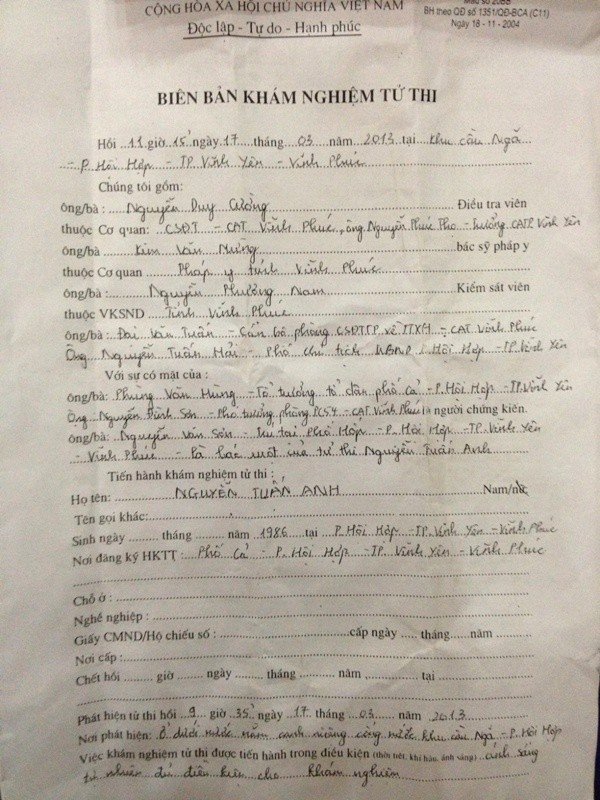 CỘNG HÒA XÃ HỘI CHỦ NGHĨA VIỆT NAM
Độc lập - Tự do - Hạnh phúc
Mẫu số
BH theo QĐ số 1351/QĐ-BCA (C11)
Ngày 18 - 11 - 2004
BIÊN BẢN KHÁM NGHIỆM TỬ THI
Hồi 11 giờ 15' ngày 17 tháng 03 năm 2013 tại Khu cầu Ngã
- P. Hội Hợp - TP Vĩnh Yên - Vĩnh Phúc
Chúng tôi gồm:
ông/bà: Nguyễn Duy Cường Điều tra viên
thuộc Cơ quan: CSĐT - CAT Vĩnh Phúc, ông Nguyễn Phúc Thọ - trưởng CATP Vĩnh Yên
ông/bà Kim Văn bác sỹ pháp y
thuộc Cơ quan Pháp y tỉnh Vĩnh Phúc
ông/bà: Nguyễn Phương Nam Kiểm sát viên
thuộc VKSND Tỉnh Vĩnh Phúc
ông/bà: Đại Văn Tuấn - Cán bộ phòng CSĐTTP về TTXH - CAT Vĩnh Phúc
Ông Nguyễn Tuấn Hải - Phó chủ tịch UBND P. Hội Hợp - TP. Vĩnh Yên
Với sự có mặt của :
ông/bà: Phùng Văn Hùng - Tổ trưởng tổ dân phố cả - P. Hội Hợp - TP. Vĩnh Yên
Ông Nguyễn Đình Sơn - Phó trưởng phòng PC54 - CAT Vĩnh Phúc là người chứng kiến
ông/bà: Nguyễn Văn Sơn - trú tại Phố Hợp - P. Hội Hợp - TP. Vĩnh Yên
- Vĩnh Phúc - là bác ruột của tử thi Nguyễn Tuấn Anh
Tiến hành khám nghiệm tử thi :
Họ tên: NGUYỄN TUẤN ANH Nam/nữ
Tên gọi khác:
Sinh ngày tháng năm 1986 tại P. Hội Hợp - TP. Vĩnh Yên - Vĩnh Phúc
Nơi đăng ký HKTT: Phố Cả - P. Hội Hợp - TP Vĩnh Yên - Vĩnh Phúc
Chỗ ở :
Nghề nghiệp :
Giấy CMND/Hộ chiếu số : cấp ngày tháng năm
Nơi cấp :
Chết hồi giờ ngày tháng năm , tại
Phát hiện tử thi hồi 9 giờ 35' ngày 17 tháng 03 năm 2013
Nơi phát hiện: Ở dưới mương cạnh cống nước khu cầu Ngã - P. Hội Hợp
Việc khám nghiệm tử thi được tiến hành trong điều kiện (thời tiết, khí hậu, ánh sáng) ánh sáng
tự nhiên đủ điều kiện cho khám nghiệm